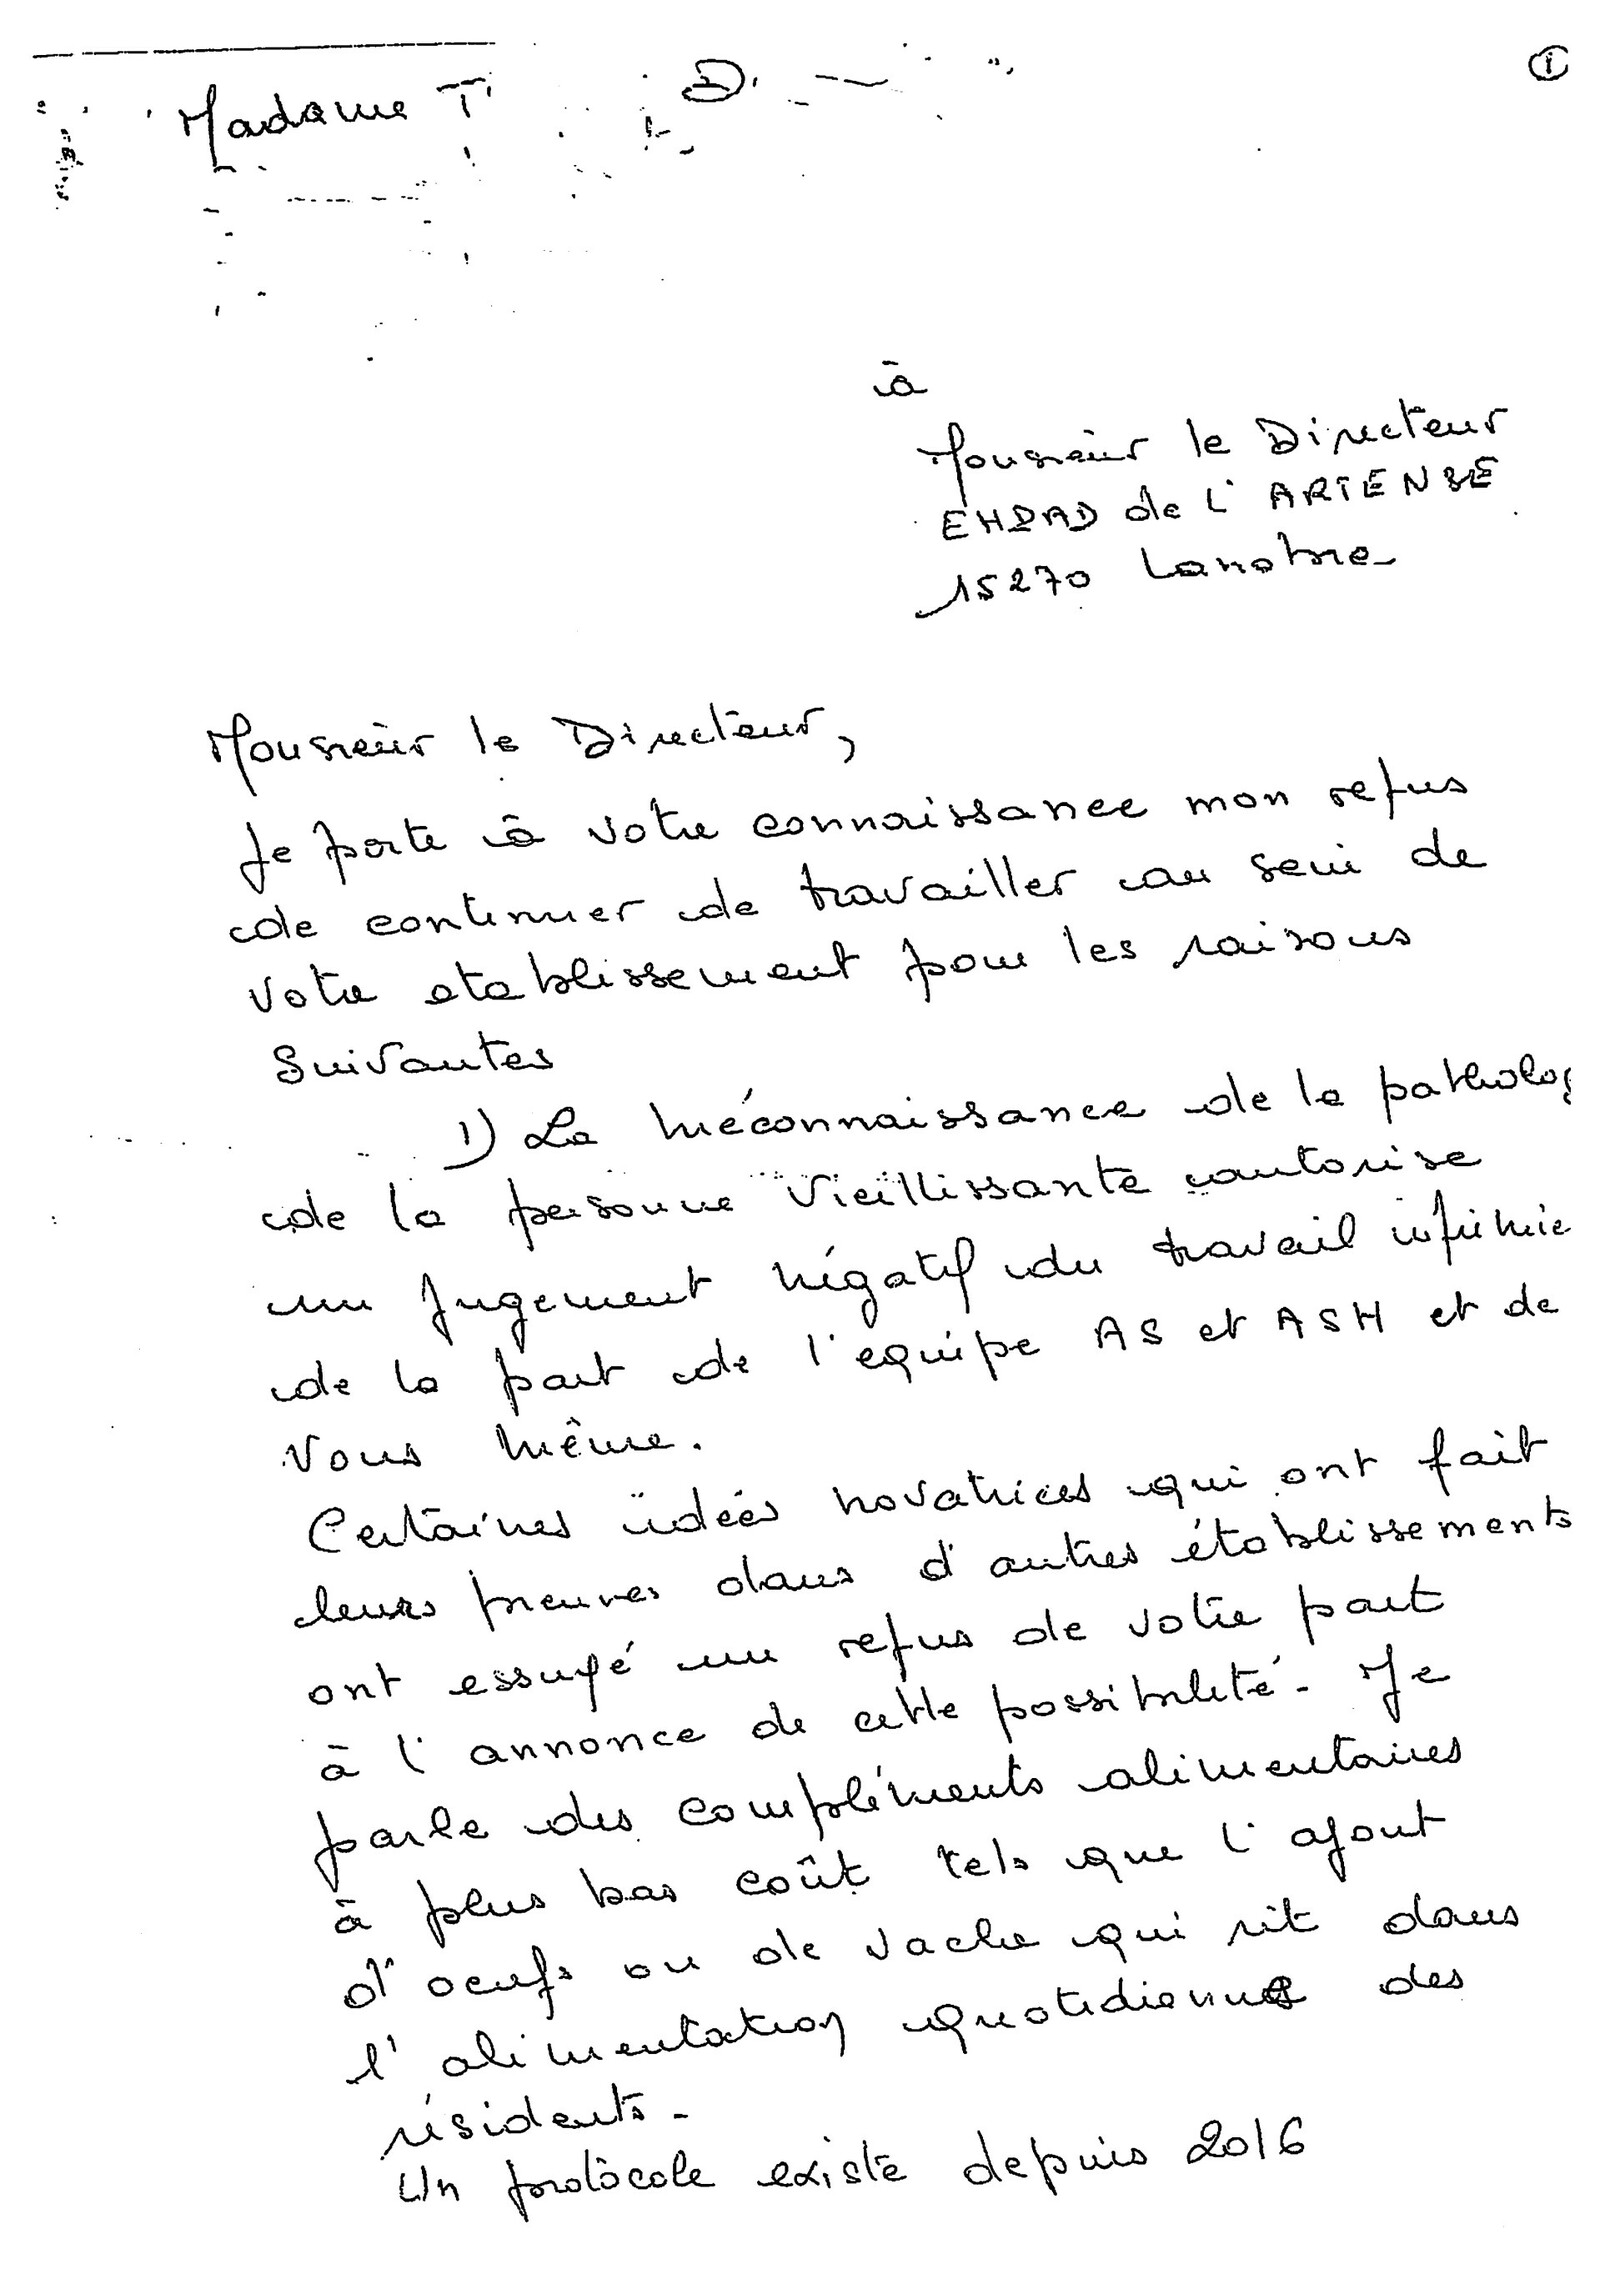 ①
Madame T D.
à
Monsieur le Directeur
EHPAD de L'ARTENSE
15270 Lanobre
Monsieur le Directeur,
Je porte à votre connaissance mon refus
de continuer de travailler au sein de
votre etablissement pour les raisons
Suivantes
1) La méconnaissance de la patholog
de la personne Vieillissante autorise
un jugement négatif du travail infirmie
de la part de l'equipe AS et ASH et de
Vous même.
Certaines idées novatrices qui ont fait
leurs preuves dans d'autres établissements
ont essuyé un refus de votre part
à l'annonce de cette possibilité. Je
parle des compléments alimentaires
à plus bas coût tels que l'ajout
d'oeufs ou de vache qui rit dans
l'alimentation quotidienne des
résidents.
Un protocole existe depuis 2016